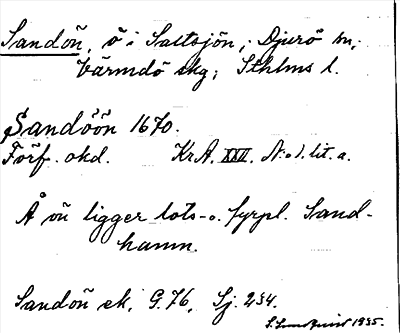 Sandön, ö i Saltsjön; Djurö sn,
Värmdö skg; Sthlms l.
Sandöön 1670.
Förf. okd. KrA. XXII. N:o 1. lit. a.
Å ön ligger lots- o. fyrpl. Sand-
hamn.
Sandön ek, G.76, Sj. 234.
S. Lundquist 1935.